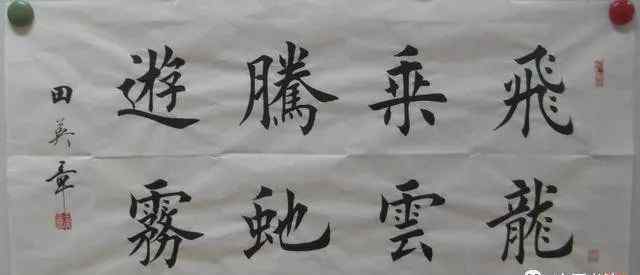 飛龍
乗雲
騰虵
遊霧
田英章